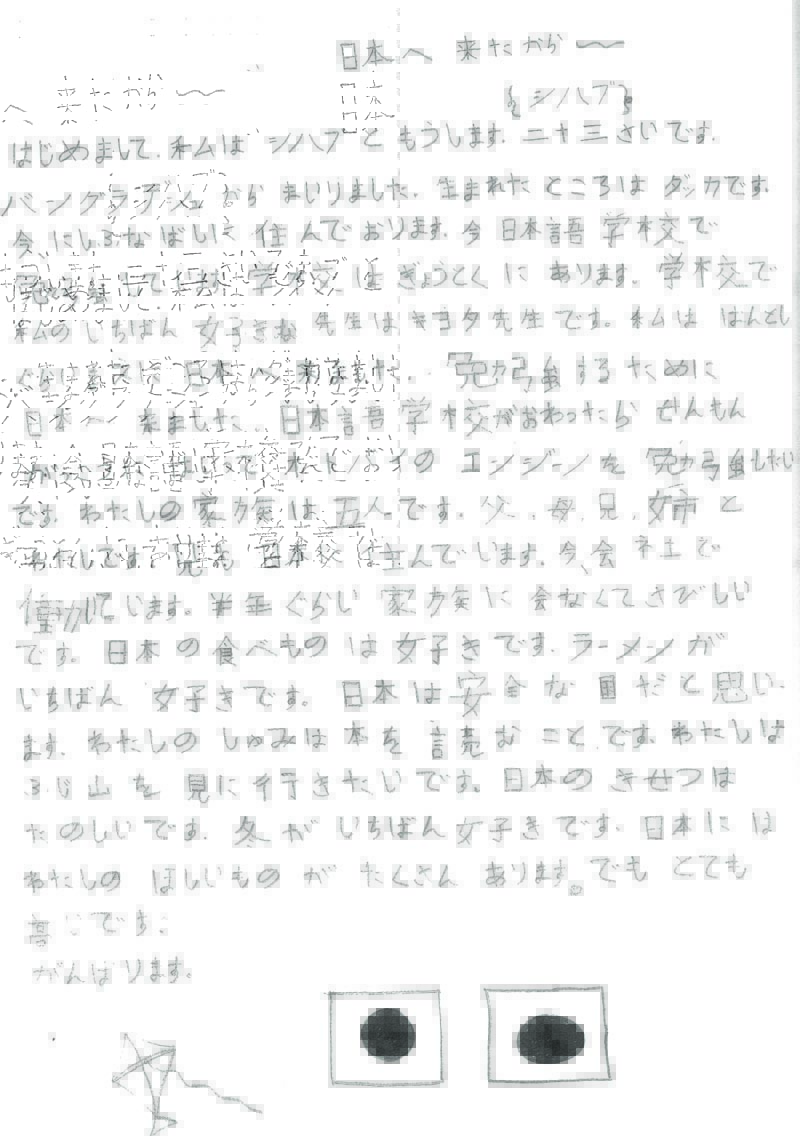 日本へ 来たから〜
{シハブ}
はじめまして、私は シハブと もうします。二十三さいです。
バングラデシュから まいりました。生まれた ところは ダッカです。
今 にしふなばしに 住んでおります。今 日本語 学校で
学校は ぎょうとくに あります。学校で
私の いちばん 女子きな 先生は キヨタ先生です。私は はんとし
ぐらい 日本へ 来ました。勉強するために
日本へ 来ました。日本語 学校がおわったら せんもん
エンジーノを 勉強したい
です。わたしの 家族は 五人です。父、母、兄、姉と
わたしです。今、会社で
働いています。半年ぐらい 家族に 会なくてさびしい
です。日本の食べものは 女子きです。ラーメンが
いちばん 女子きです。日本は 安全な 国だと思い
ます。わたしの しゅみは 本を 読むことです。わたしは
ふじ山を 見に行きたいです。日本の きせつは
たのしいです。冬が いちばん 女子きです。日本には
わたしの ほしいものが たくさん あります。でも とても
高いです。
がんばります。